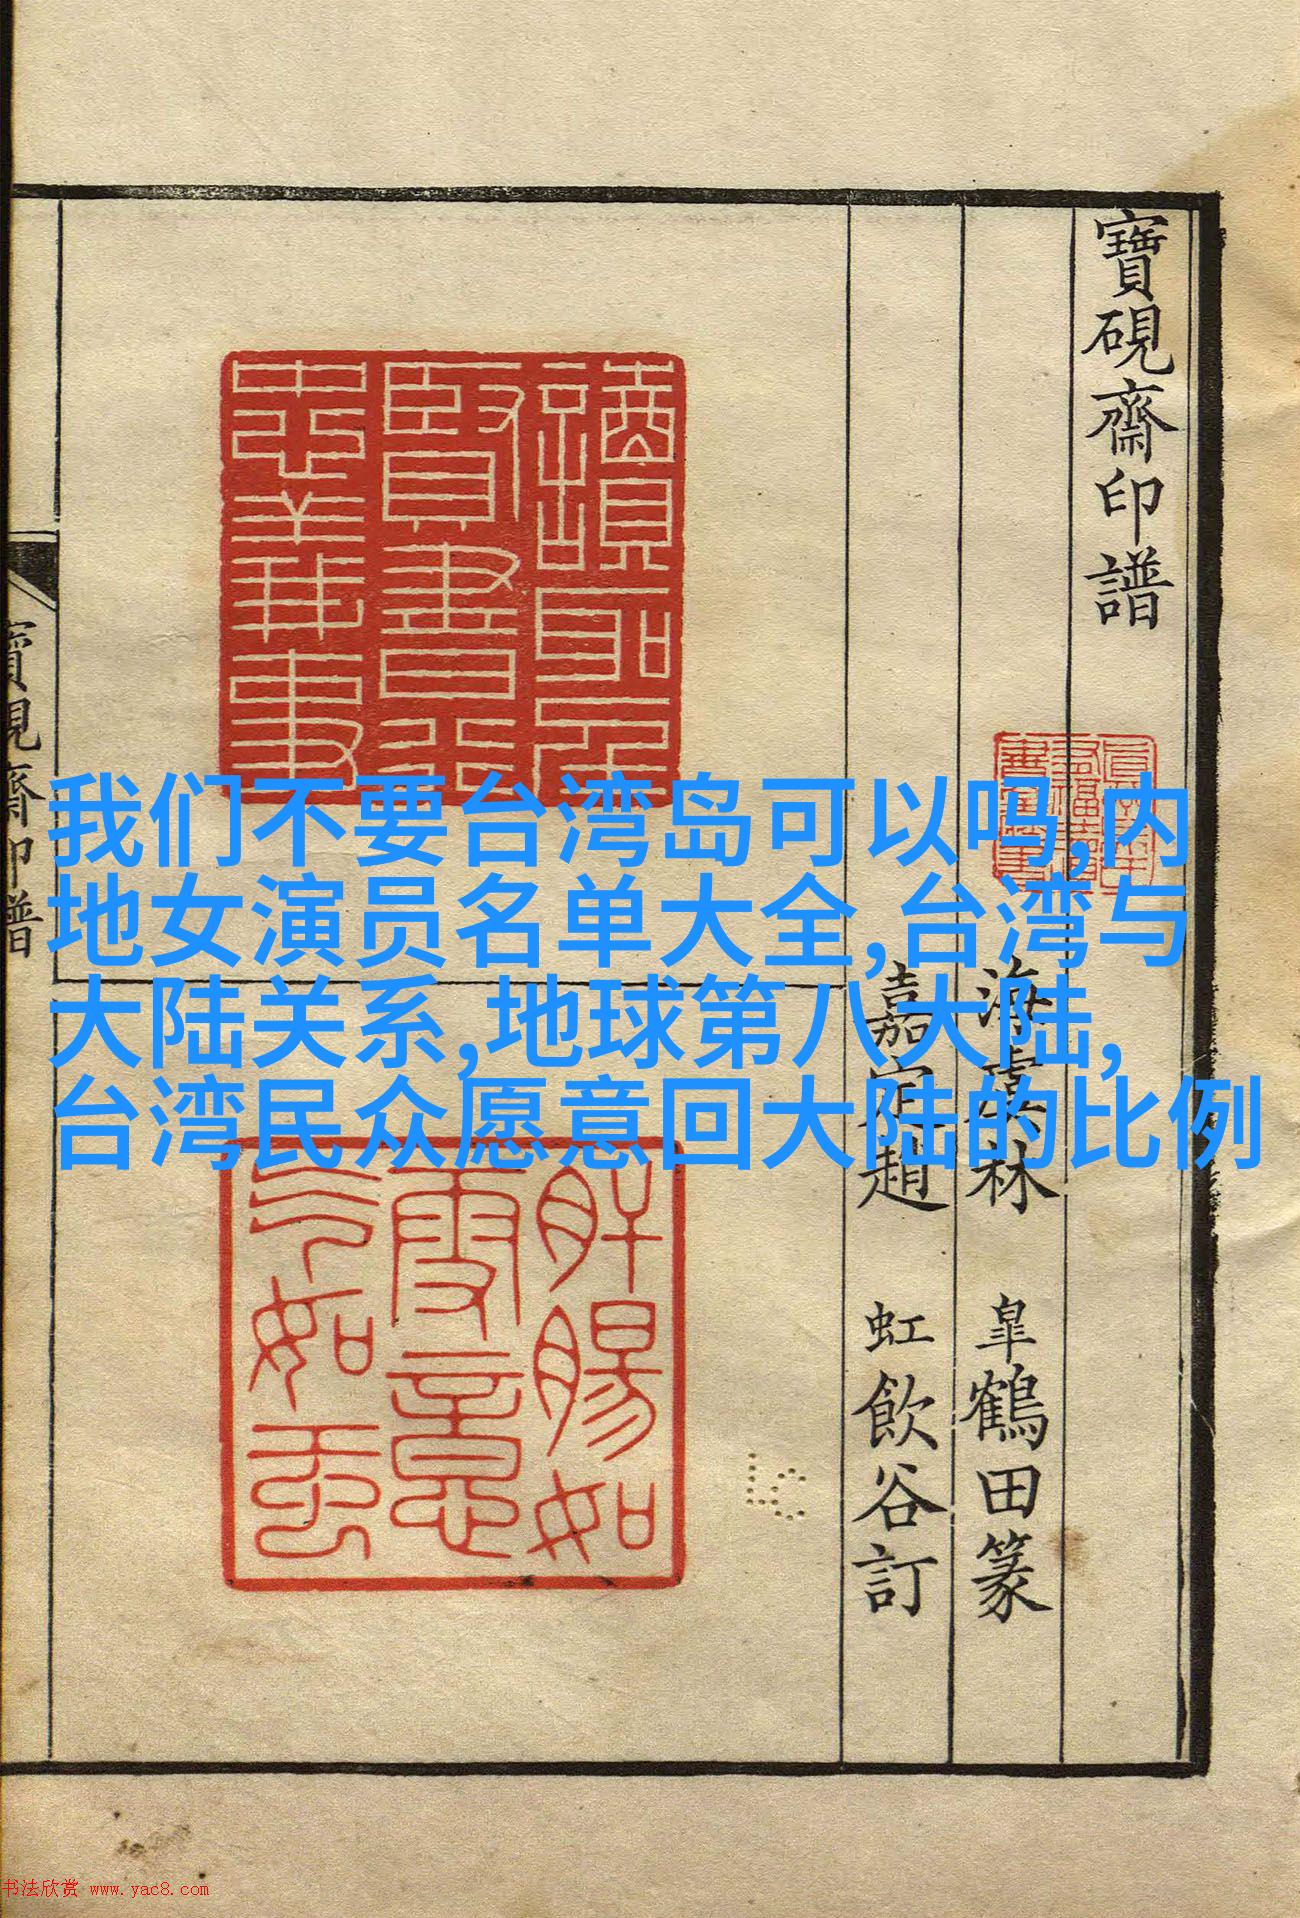 寶硯齋印譜
海虞林 皐鶴田篆
嘉定趙 虹飲谷訂
讀聖
賢書行
忠義事
肝腸如
雪意
氣如虹
我们不要台湾岛可以吗,内
地女演员名单大全,台湾与
大陆关系,地球第八大陆,
台湾民众愿意回大陆的比例
寶硯齋印譜
书法欣赏 www.yac8.com